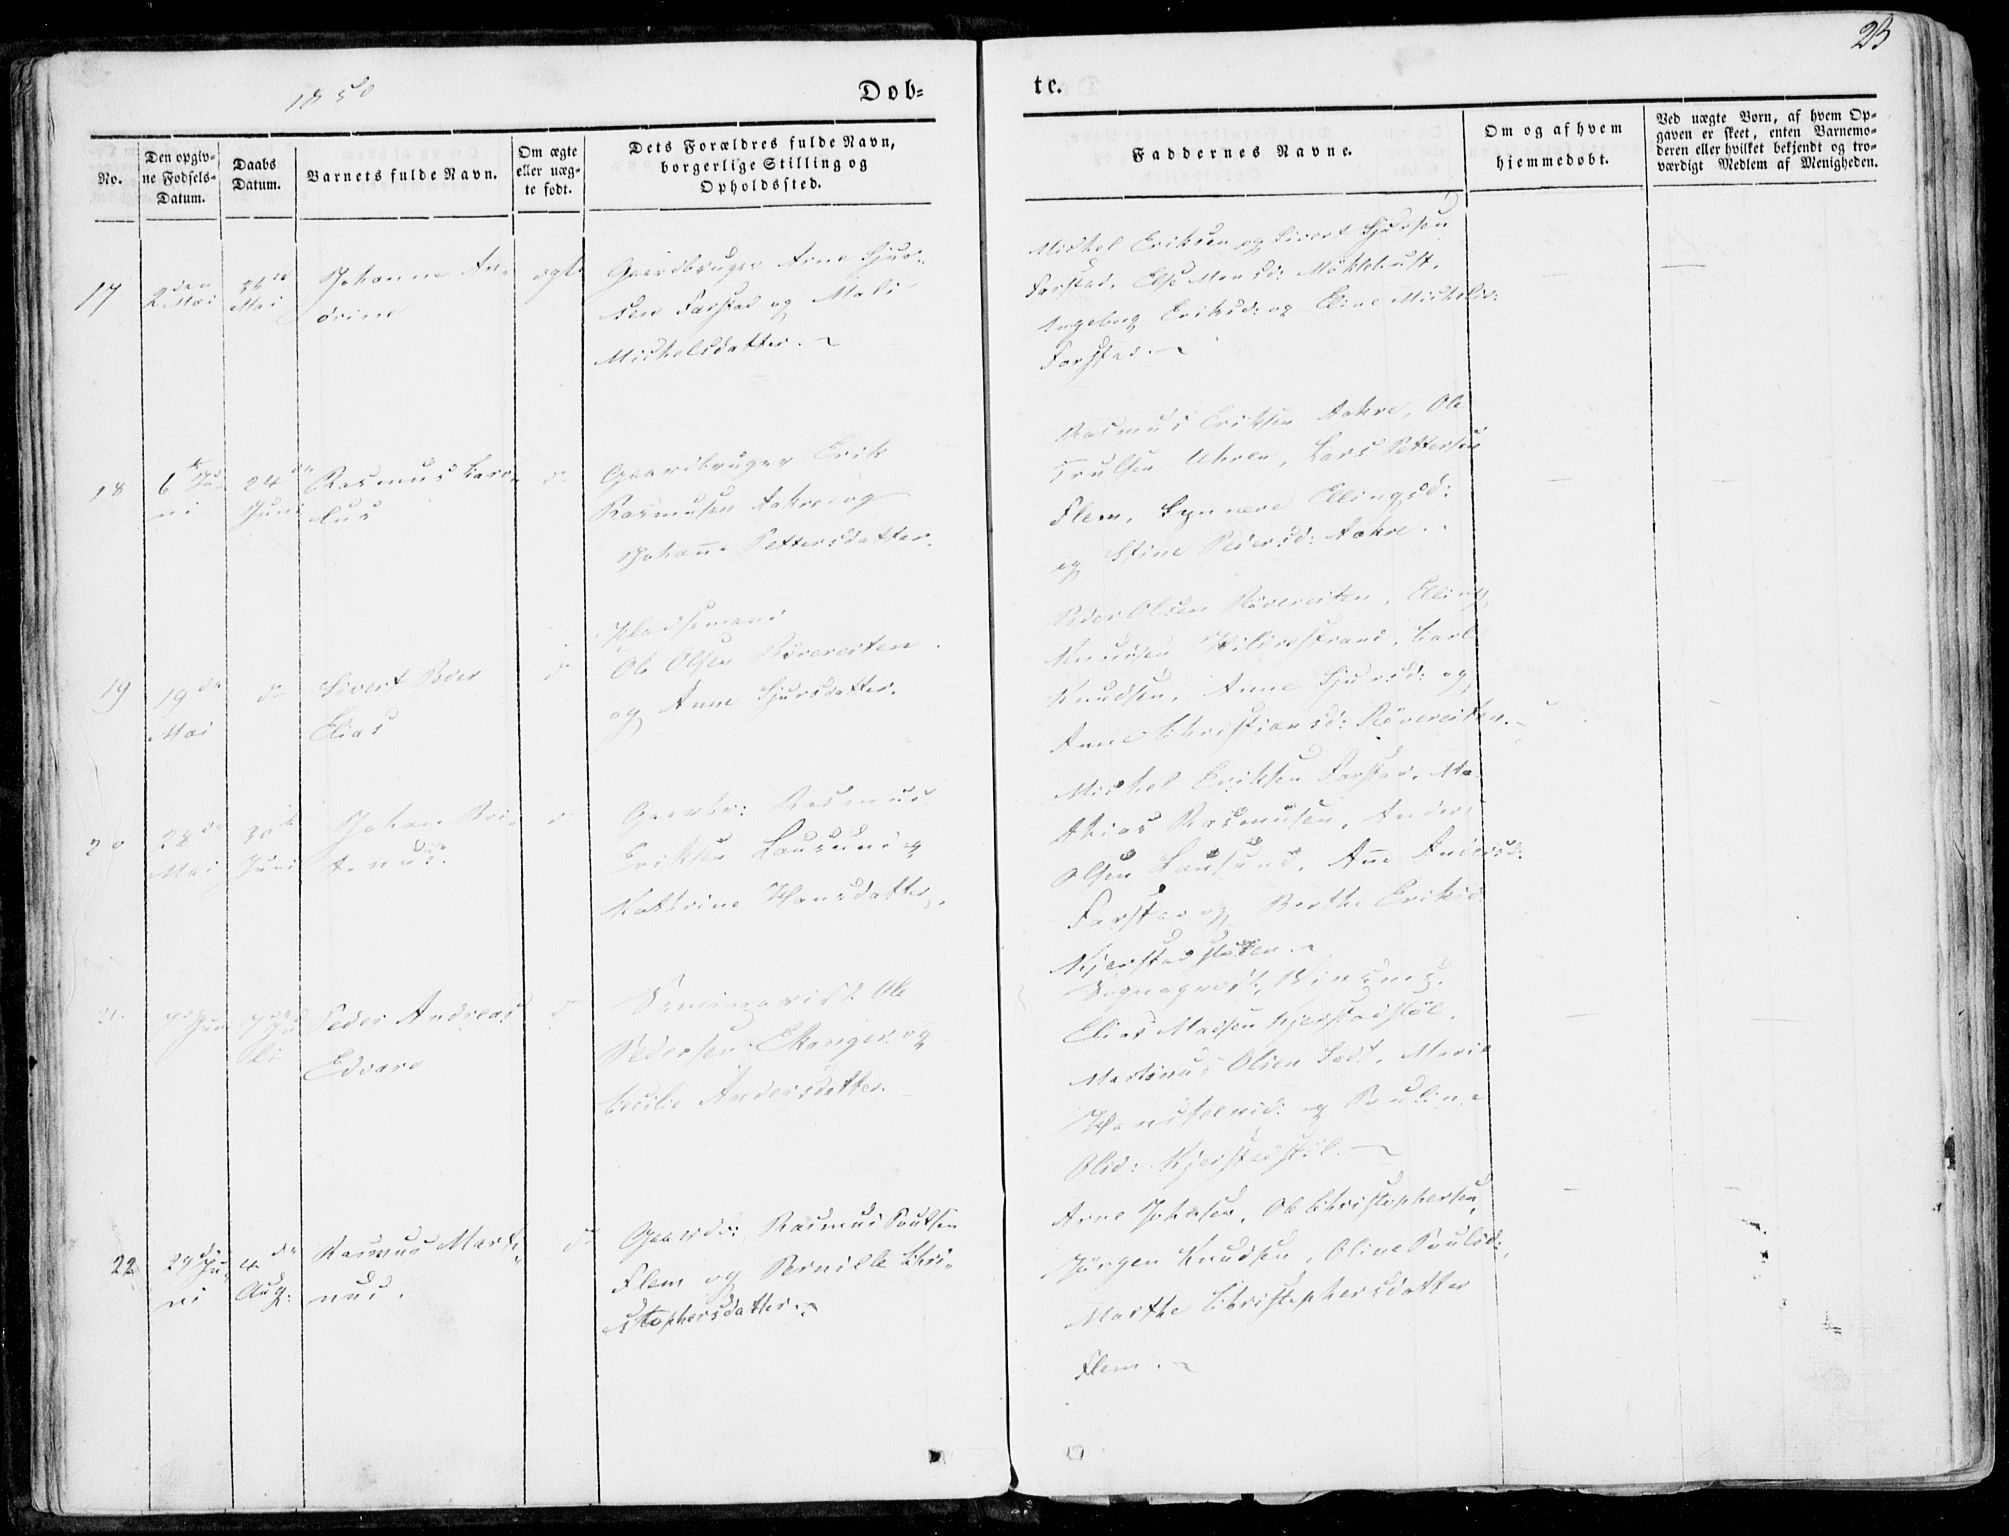 23
1850
Døb=
te.
No.
Den opgiv=
ne Fødsels=
Datum.
Daabs
Datum.
Barnets fulde Navn.
Om ægte
eller uæg=
te født.
Dets Forældres fulde Navn,
borgerlige Stilling og
Opholdssted.
Faddernes Navne.
Om og af hvem
hjemmedøbt.
Ved uægte Børn, af hvem Op=
gaven er skeet, enten Barnemo=
deren eller hvilket bekjendt og tro=
værdigt Medlem af Menigheden.
17
2den
Mai
26de
Mai
Johanne An=
drine
ægte
Gaardbruger Arne Sjur=
sen Farstad og Mali
Michelsdatter.
Michel Eriksen og Sivert Sjursen
Farstad, Else Monsd: Mæklebust,
Ingeborg Eriksd: og Eline Michelsd:
Farstad.
18
6te Ju=
ni
24de
Juni
Rasmus Karo=
lus
do
Gaardbruger Erik
Rasmusen Aakre og
Johanne Pettersdatter.
Rasmus Eriksen Aakre, Ole
Trulsen Uhren, Lars Pettersen
Flem, Synneve Ellingsd:
og Stine Pedersd: Aakre.
19
19de
Mai
do
Sivert Peder
Elias
do
Pladsemand
Ole Olsen Røvereiten
og Anne Sjursdatter.
Peder Olsen Røvereiten, Elling
Knudsen Hildrestrand, Carl
Knudsen, Anne Sjursd: og
Anne Christiansd: Røvereiten.
20
28de
Mai
30te
Juni
Johan
nus.
do
Gaardbr: Rasmus
Eriksen Lausund og
Kathrine Hansdatter.
Michel Eriksen Farstad, Ma=
thias Rasmusen, Anders
Olsen Lausund, Ane Andersd:
Farstad og Berthe Eriksd:
Kjerstadstølen.
7de
Juli
Peder Andreas
Edvard
do
Seminarist Ole
Pedersen Ekanger og
Cecilie Andersdatter.
Sognepræst
Elias Madsen Kjerstadstøl,
Martinus Olsen Sødt, Marie
og Pauline
Olsd: Kjerstadstøl.
22
29de Ju=
ni
4de
Aug:
Rasmus Marti=
nus.
do
Gaardbr: Rasmus Poulsen
Flem og Pernille Chri=
stophersdatter.
Arne Johnsen, Ole Christophersen,
Jørgen Knudsen, Oline Poulsd:,
Marthe Christophersdatter
Flem.